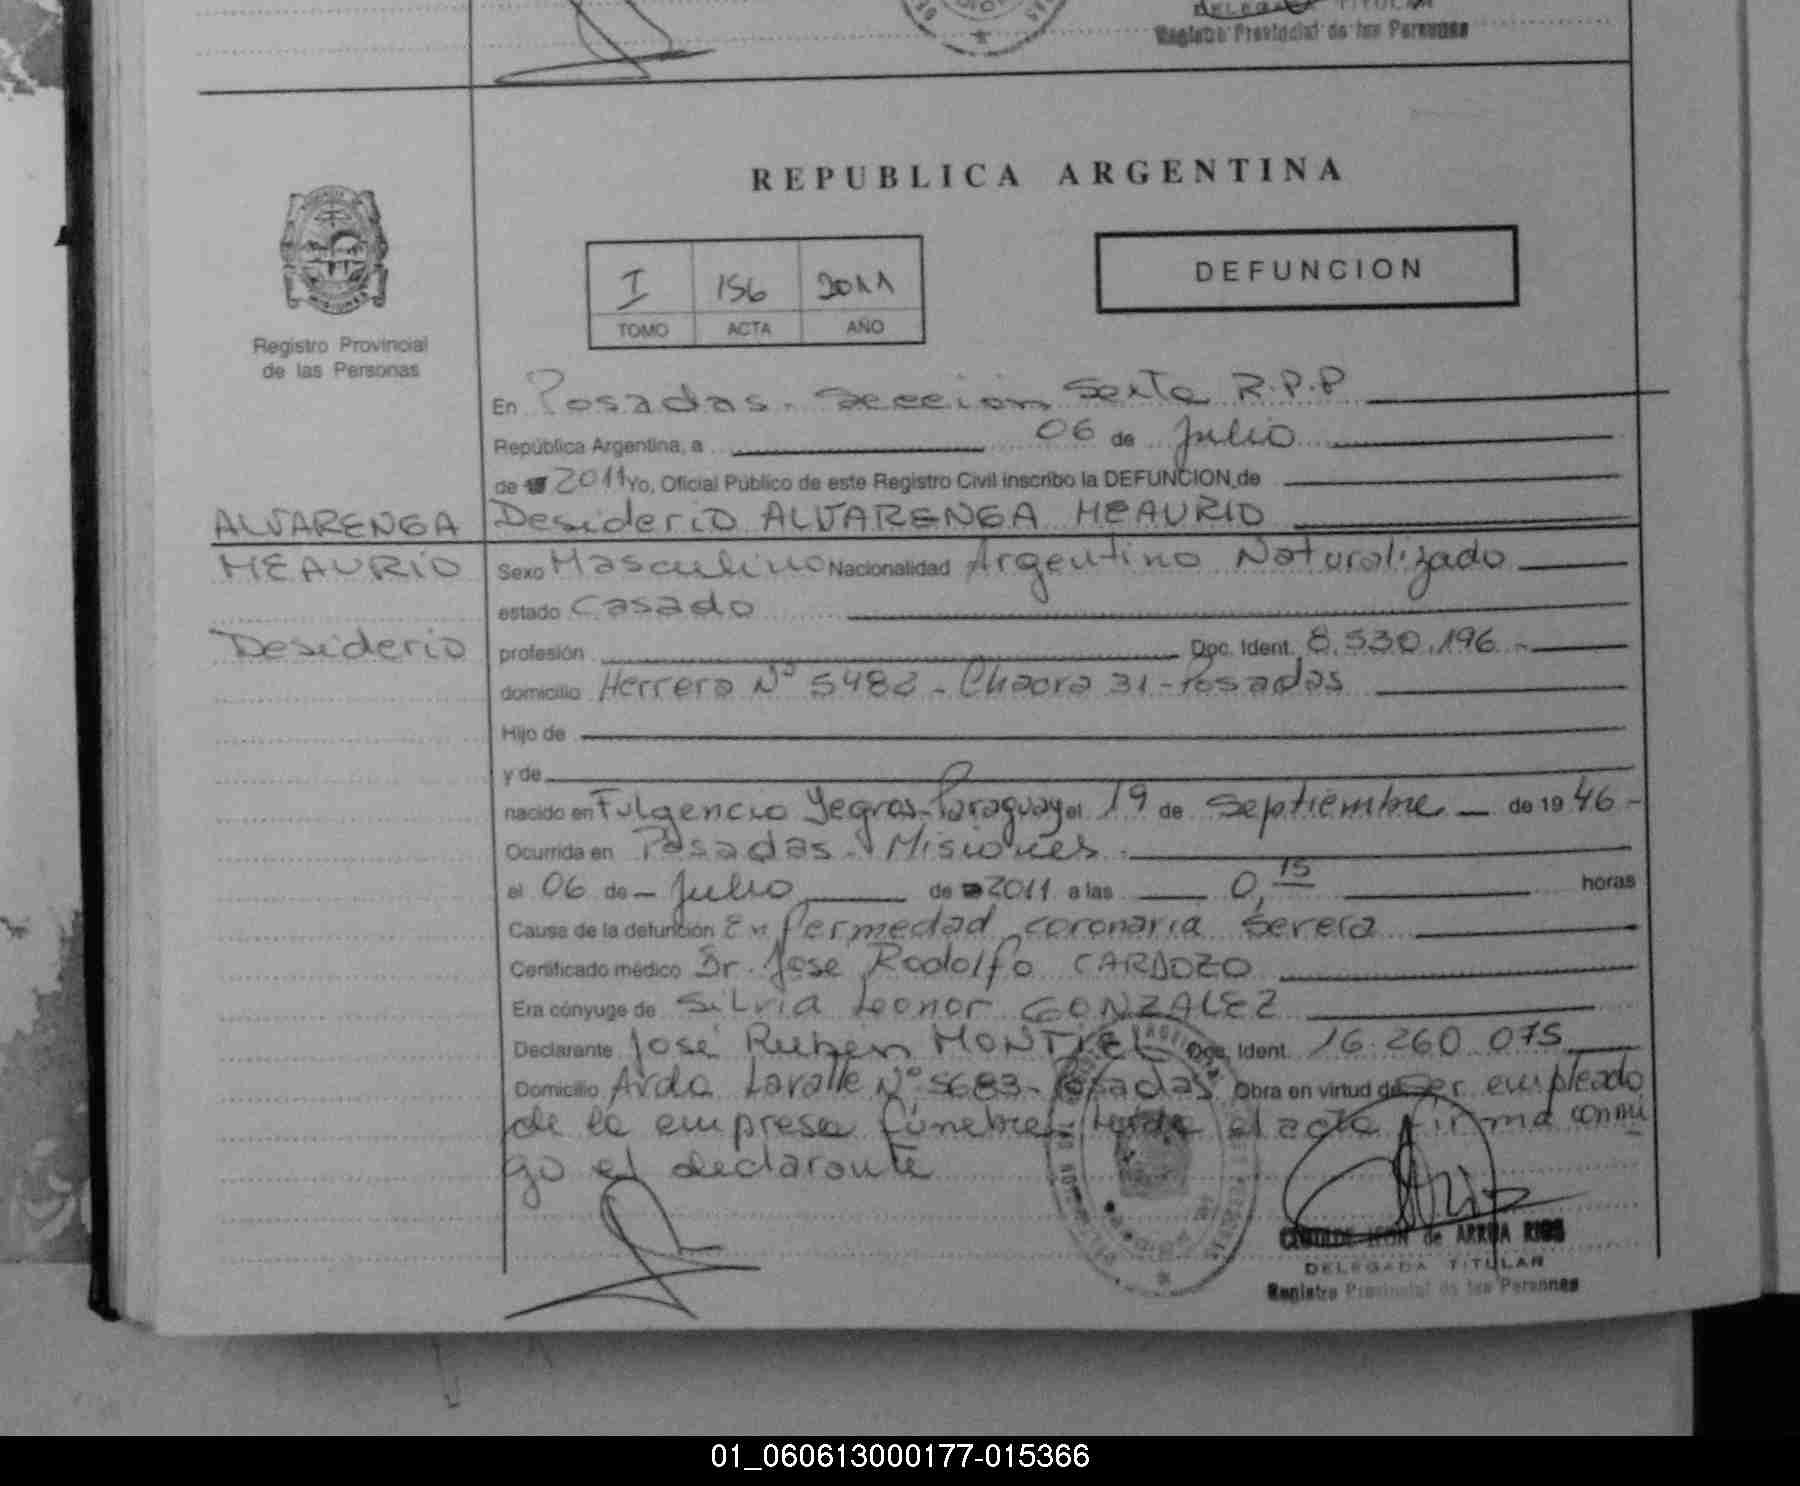 DELEGADA TITULAR
Registro Provincial de las Personas
REPUBLICA ARGENTINA
MISIONES
Registro Provincial
de las Personas
I 156 2011
TOMO ACTA AÑO
DEFUNCION
En Posadas. Seccion Sexta R.P.P
República Argentina, a 06 de Julio
de 2011 Yo, Oficial Público de este Registro Civil inscribo la DEFUNCION de
ALVARENGA Desiderio ALVARENGA MEAURIO
MEAURIO Sexo Masculino Nacionalidad Argentino Naturalizado
estado Casado
Desiderio profesión Doc. Ident. 8.530.196.-
domicilio Herrera Nº 5482 - Chacra 31 - Posadas
Hijo de
y de
nacido en Fulgencio Yegros-Paraguay el 19 de Septiembre de 1946-
Ocurrida en Posadas. Misiones.
el 06 de Julio de 2011 a las 0,15 horas
Causa de la defunción Enfermedad coronaria severa
Certificado médico Dr. Jose Rodolfo CARDOZO
Era cónyuge de Silvia Leonor GONZALEZ
Declarante José Ruben MONTIEL Doc. Ident. 16.260.075
Domicilio Avda Lavalle Nº 5683-Posadas Obra en virtud de Ser empleado
de la empresa fúnebre. el acta firma conmi
go el declarante
de ARRUA RIOS
DELEGADA TITULAR
Registro Provincial de las Personas
01_060613000177-015366